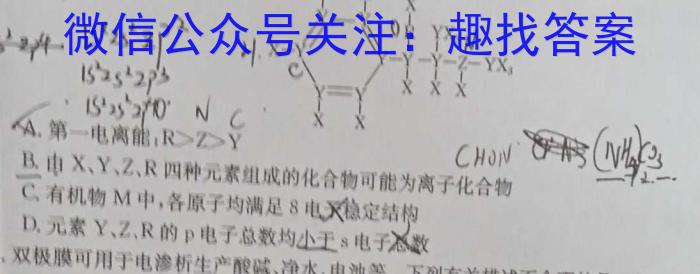 微信公众号关注：趣找答案
1s²2s²2p³
C
YX₃
X X X
Y=Y
X X
N C
A. 第一电离能：R>Z>Y
CHON (NH₄)₂CO₃
B. 由X、Y、Z、R四种元素组成的化合物可能为离子化合物
C. 有机物M中，各原子均满足8电子稳定结构
D. 元素Y、Z、R的p电子总数均小于s电子总数
双极膜可用于电渗析生产酸碱、净水、电池等